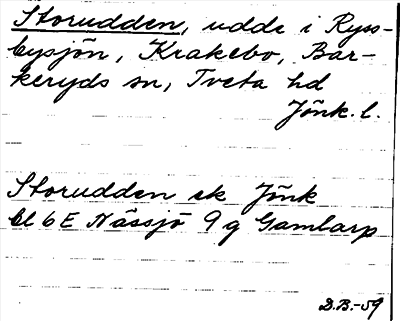 Storudden, udde i Ryss-
bysjön, Krakebo, Bar-
keryds sn, Tveta hd
Jönk. l.
Storudden ek Jönk
bl 6E Nässjö 9 g Gamlarp
D.B.-59